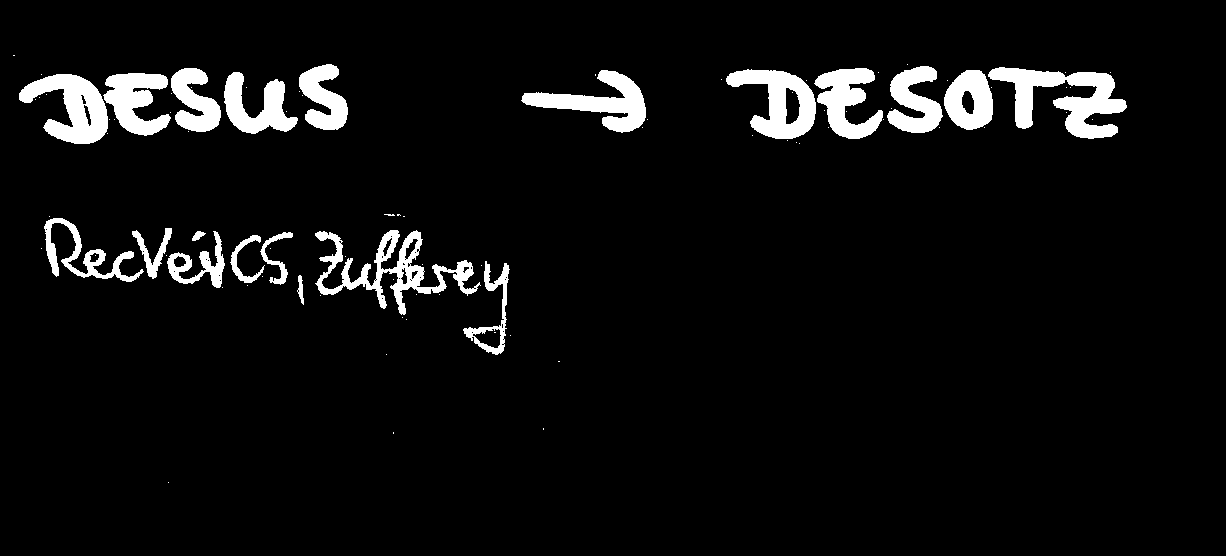 DESUS → DESOTZ
RecVeivCS, Zufferey